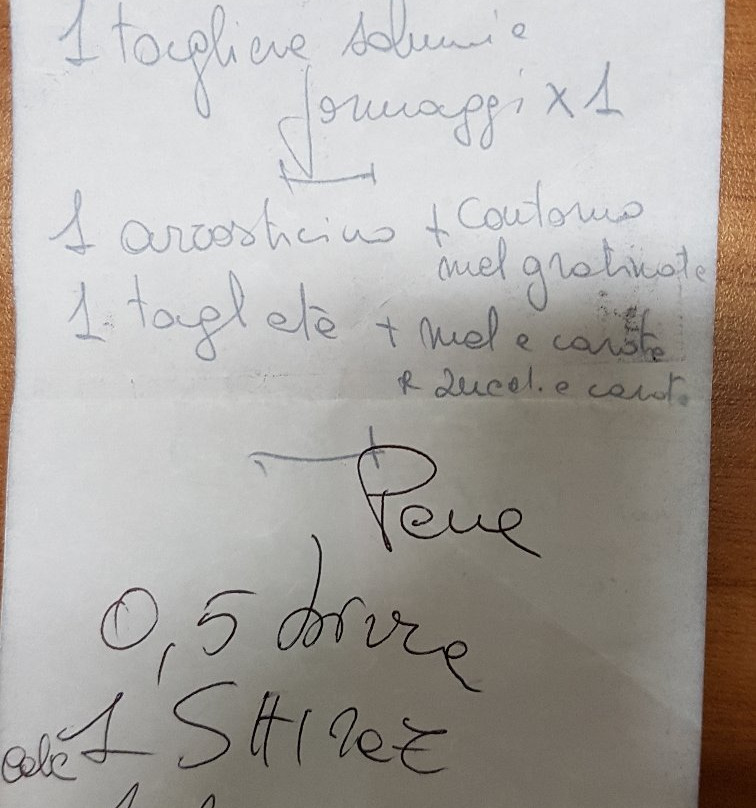 1 tagliere salumi e
formaggi x 1
1 arrosticino + contorno
mel gratinate
1 tagl etè + mel e carote
+ zucch. e carot.
Pene
0,5 birra
1 SHIRAZ